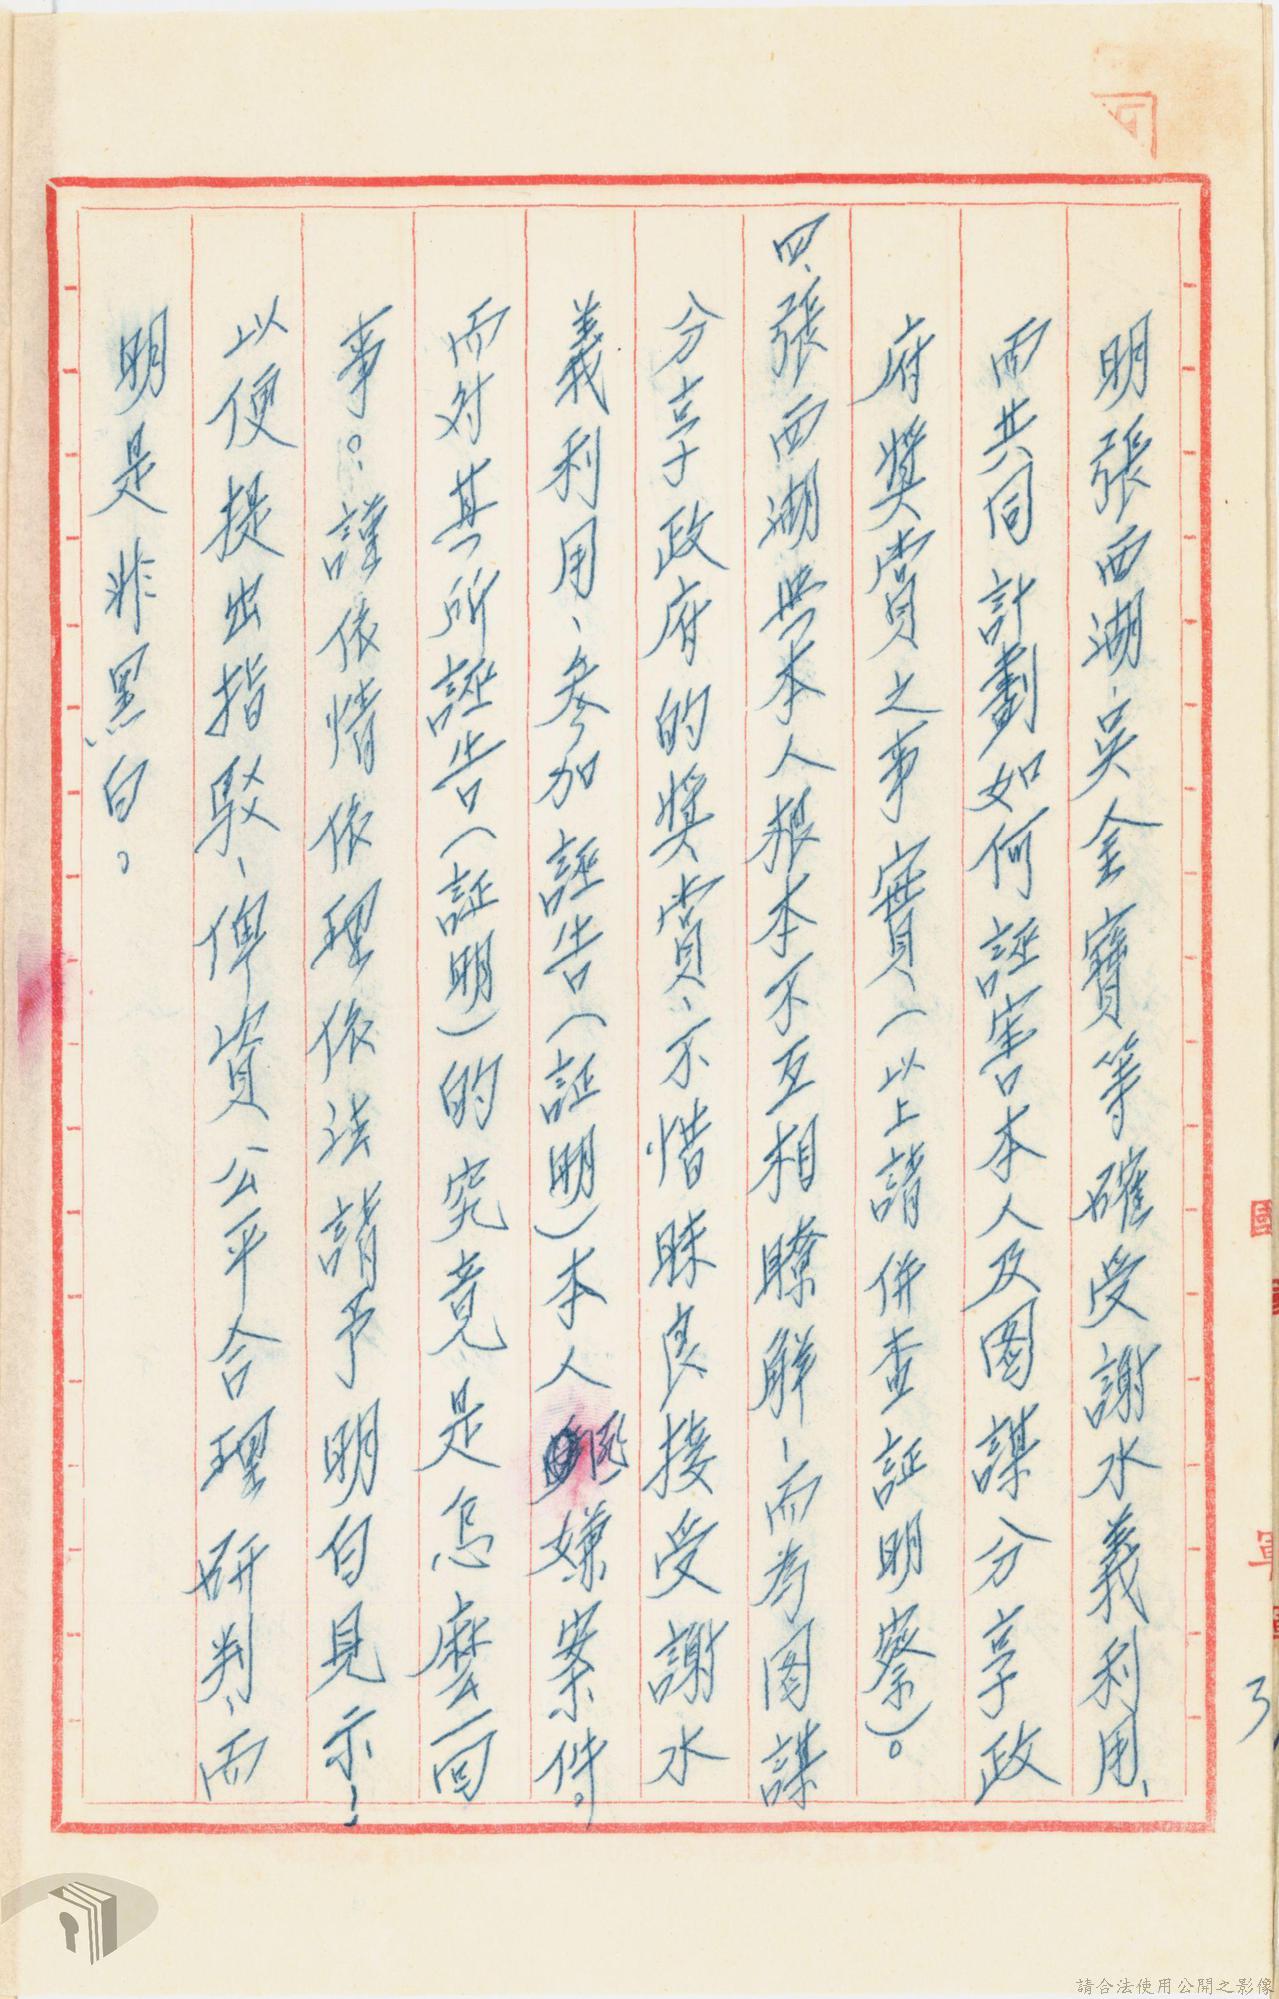 明張西湖、吳金寶等確受謝水義利用、
而共同計劃如何誣害本人及图謀分享政
府獎賞之事實(以上請併查証明察)。
四、張西湖與本人根本不互相瞭解、而為图謀
分享政府的獎賞、不惜昧良接受謝水
義利用、參加誣告(証明)本人嫌案件。
而对其所誣告(証明)的究竟是怎麼一回
事。謹依情依理依法請予明白見示!
以便提出指駁、俾資公平合理研判、而
明是非黑白。
3
請合法使用公開之影像